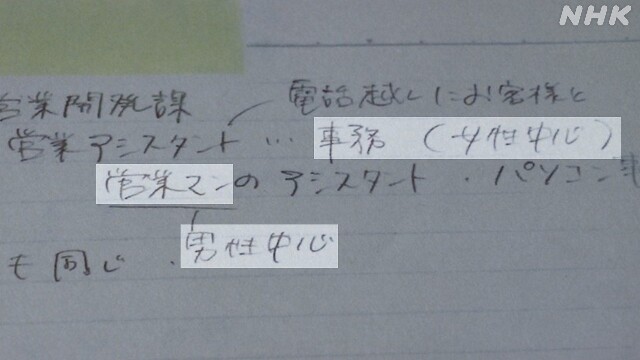 NHK
営業開発課
電話越しにお客様と
営業アシスタント … 事務（女性中心）
営業マンのアシスタント・パソコン
男性中心
も同じ・